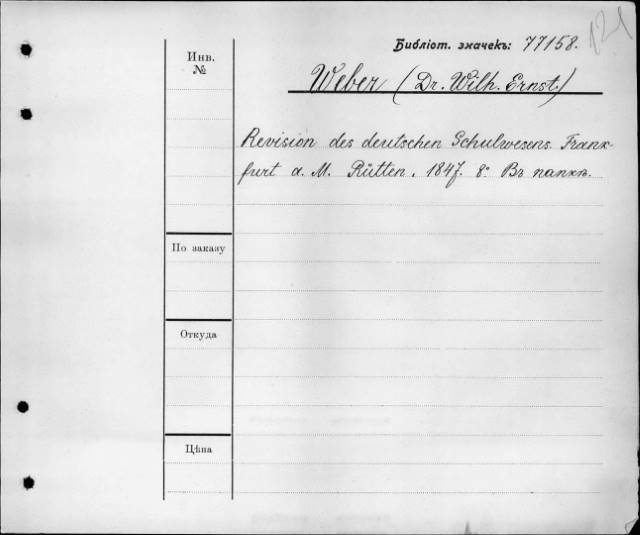 Библіот. значекъ: 77158.
Инв.
№
Weber (Dr. Wilh. Ernst)
Revision des deutschen Schulwesens. Frank-
furt a. M. Rütten. 1847. 8° Въ папкѣ.
По заказу
Откуда
Цѣна